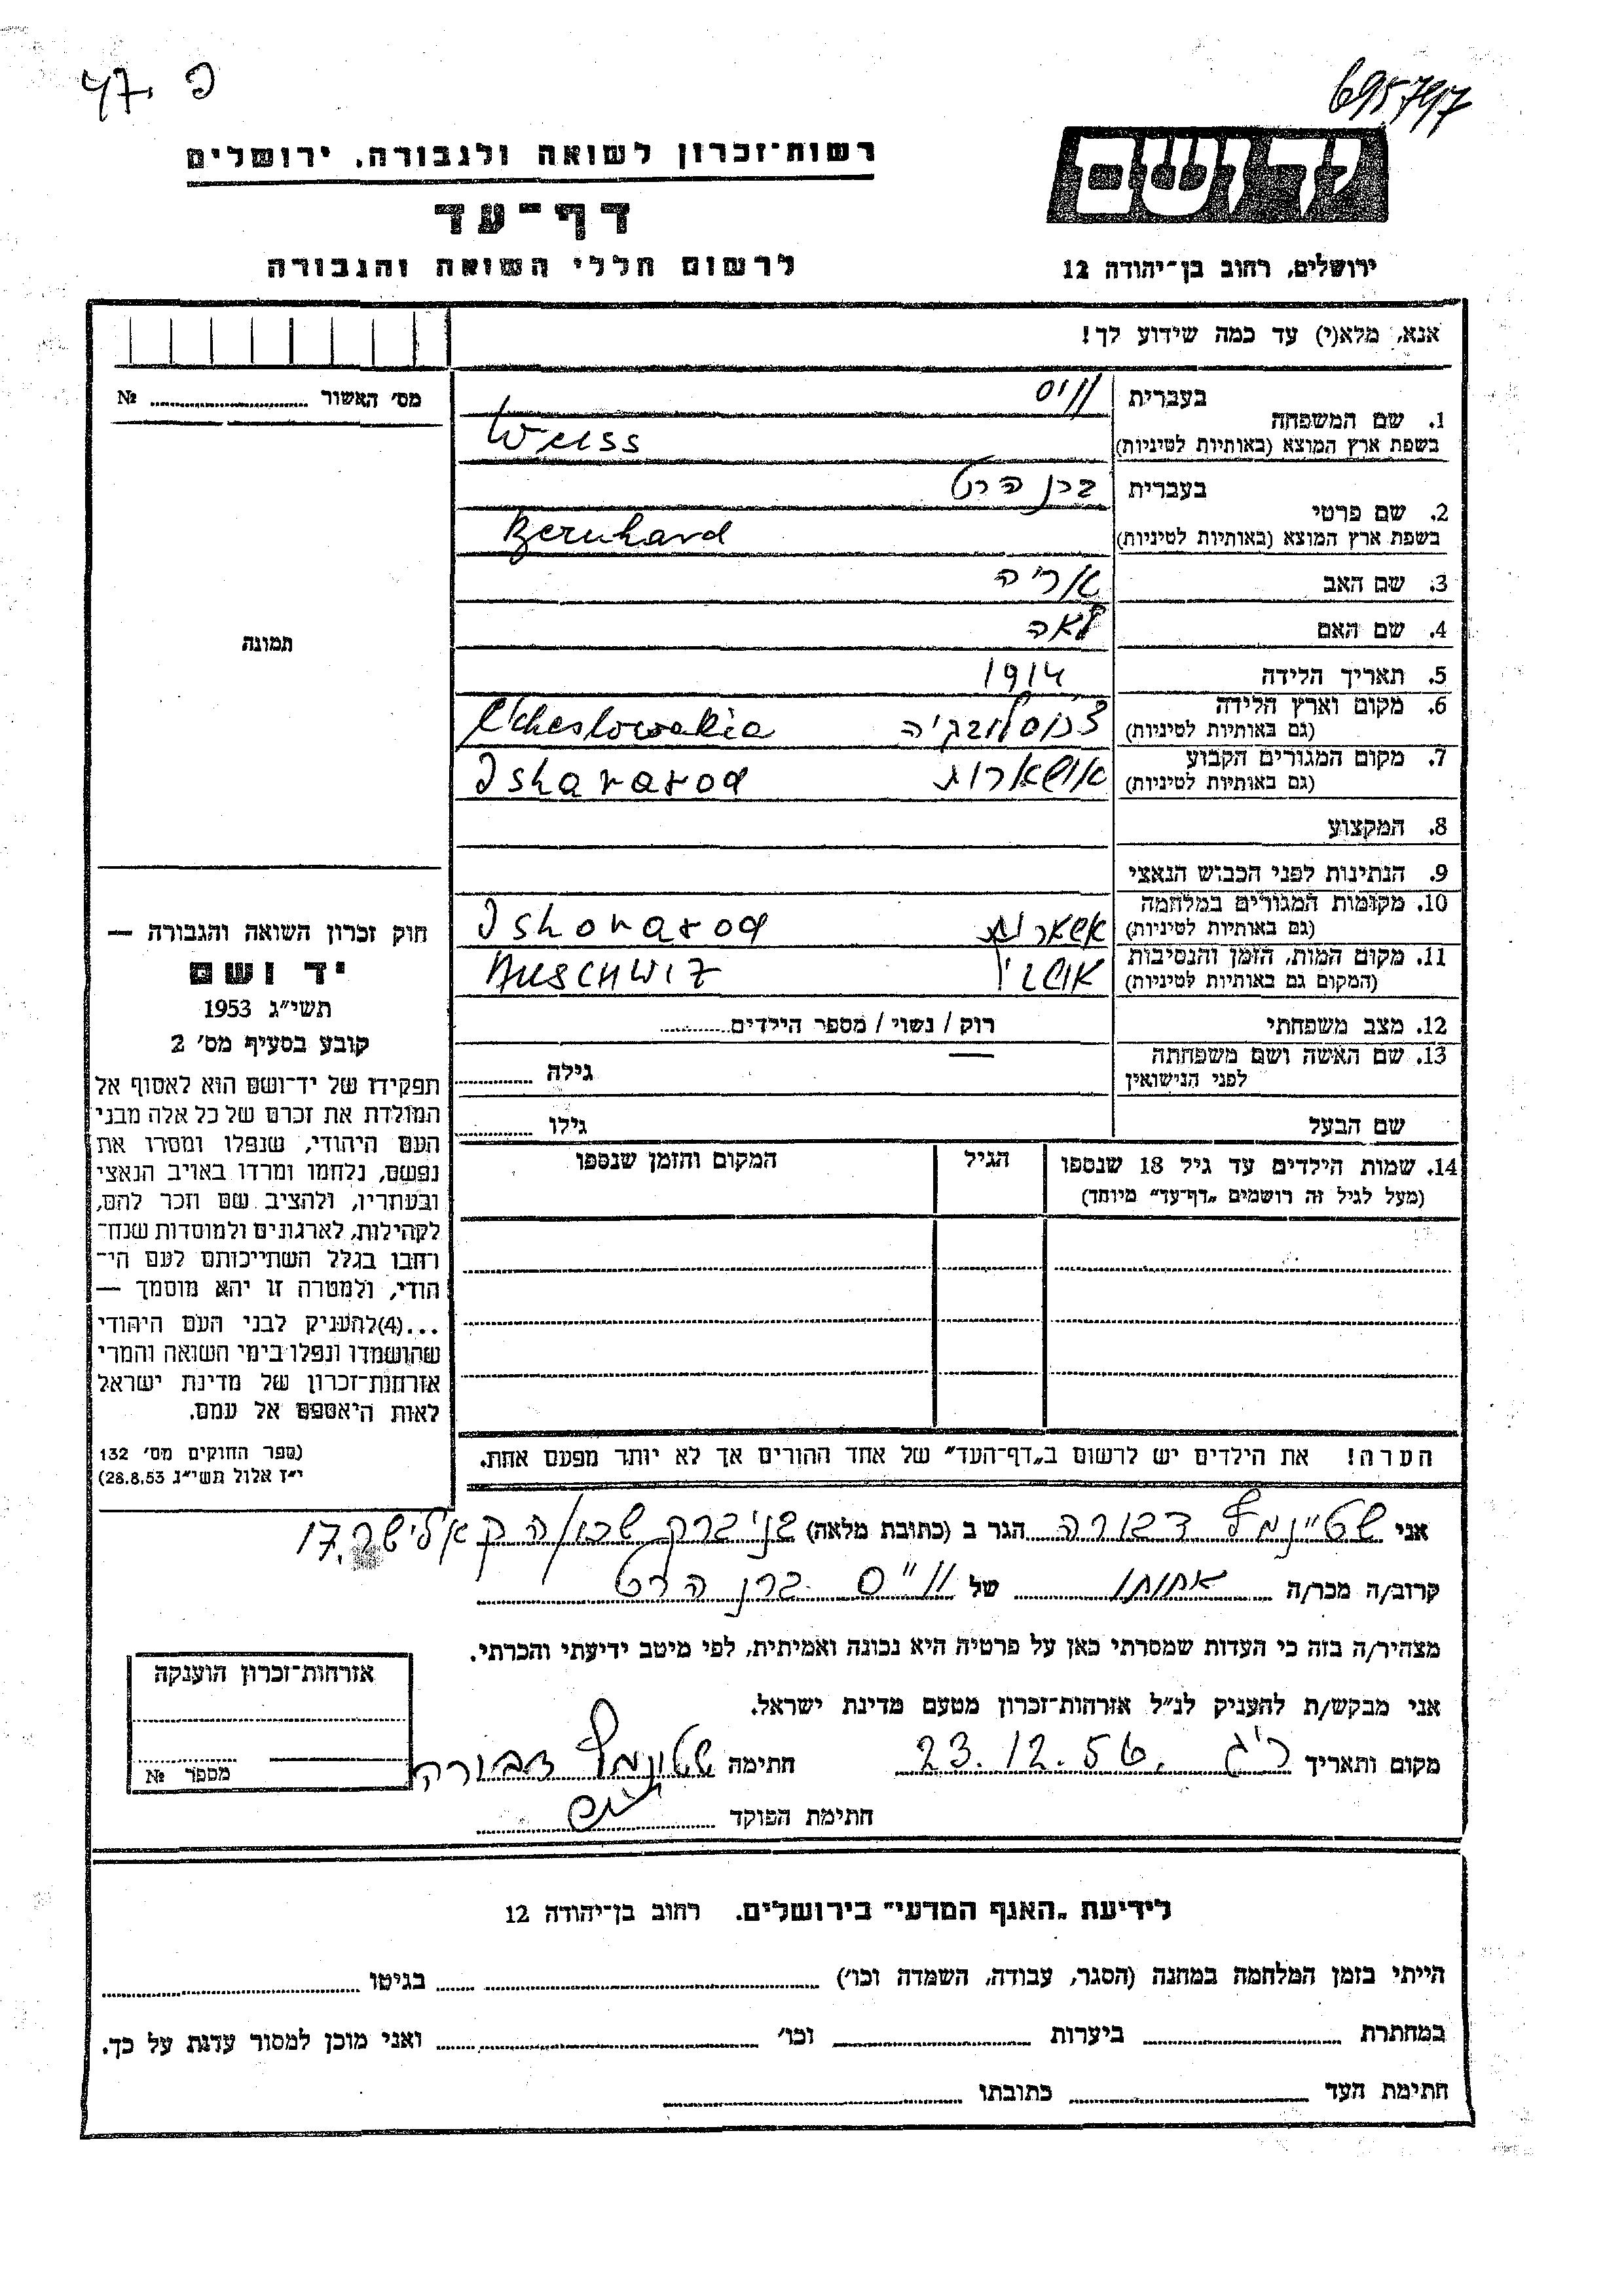 695797
פ .47
יד ושם
רשות־זכרון לשואה ולגבורה. ירושלים
דף־עד
ירושלים, רחוב בן־יהודה 12
לרשום חללי השואה והגבורה
אנא, מלא(י) עד כמה שידוע לך!
מס׳ האשור № 
1. שם המשפחה בעברית ווייס
בשפת ארץ המוצא (באותיות לטיניות) Weiss
2. שם פרטי בעברית ברן הרט
בשפת ארץ המוצא (באותיות לטיניות) Bernhard
3. שם האב אריה
4. שם האם לאה
תמונה
5. תאריך הלידה 1914
6. מקום וארץ הלידה
(גם באותיות לטיניות)
7. מקום המגורים הקבוע
(גם באותיות לטיניות)
8. המקצוע
9. הנתינות לפני הכבוש הנאצי
10. מקומות המגורים במלחמה
(גם באותיות לטיניות)
11. מקום המות, הזמן והנסיבות
(המקום גם באותיות לטיניות) AUSCHWIZ
12. מצב משפחתי רוק / נשוי / מספר הילדים
13. שם האשה ושם משפחתה
לפני הנישואין גילה
שם הבעל גילו
14. שמות הילדים עד גיל 18 שנספו הגיל המקום והזמן שנספו
(מעל לגיל זה רושמים „דף־עד״ מיוחד)
הערה! את הילדים יש לרשום ב„דף־העד״ של אחד ההורים אך לא יותר מפעם אחת.
חוק זכרון השואה והגבורה —
יד ושם
תשי״ג 1953
קובע בסעיף מס׳ 2
תפקידו של יד־ושם הוא לאסוף אל
המולדת את זכרם של כל אלה מבני
העם היהודי, שנפלו ומסרו את
נפשם, נלחמו ומרדו באויב הנאצי
ובעוזריו, ולהציב שם וזכר להם,
לקהילות, לארגונים ולמוסדות שנח־
רחבו בגלל השתייכותם לעם הי־
הודי, ולמטרה זו יהא מוסמך —
...(4)להעניק לבני העם היהודי
שהושמדו ונפלו בימי השואה והמרי
אזרחות־זכרון של מדינת ישראל
לאות היאספם אל עמם.
(ספר החוקים מס׳ 132
י״ז אלול תשי״ג 28.8.53)
אני דבורה הגר ב (כתובת מלאה) בני ברק 17
קרוב/ה מכר/ה אחותו של ווייס ברן הרט
מצהיר/ה בזה כי העדות שמסרתי כאן על פרטיה היא נכונה ואמיתית, לפי מיטב ידיעתי והכרתי.
אני מבקש/ת להעניק לנ״ל אזרחות־זכרון מטעם מדינת ישראל.
מקום ותאריך ר״ג 23.12.56 חתימה דבורה
חתימת הפוקד
אזרחות־זכרון הוענקה
מספר №
לידיעת „האגף המדעי״ בירושלים. רחוב בן־יהודה 12
הייתי בזמן המלחמה במחנה (הסגר, עבודה, השמדה וכו׳) בגיטו
במחתרת ביערות וכו׳ ואני מוכן למסור עדות על כך.
חתימת העד כתובתו